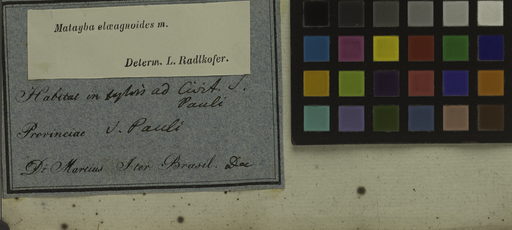 Matayba elæagnoides m.
Determ. L. Radlkofer.
Habitat in sylvis ad Civit. S.
Pauli
Provinciae S. Pauli
Dr. Martius Iter Brasil. Dec